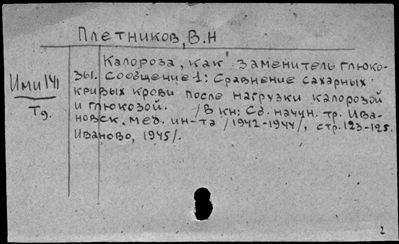 Плетников, В.Н
Калороза, как заменитель глюко-
зы. Сообщение 1: Сравнение сахарных
Ими141
кривых крови после нагрузки калорозой
Тд.
и глюкозой. /В кн: Сб. научн. тр. Ива-
новск. мед. ин-та /1942-1944/, стр. 123-125.
Иваново, 1945/.
2